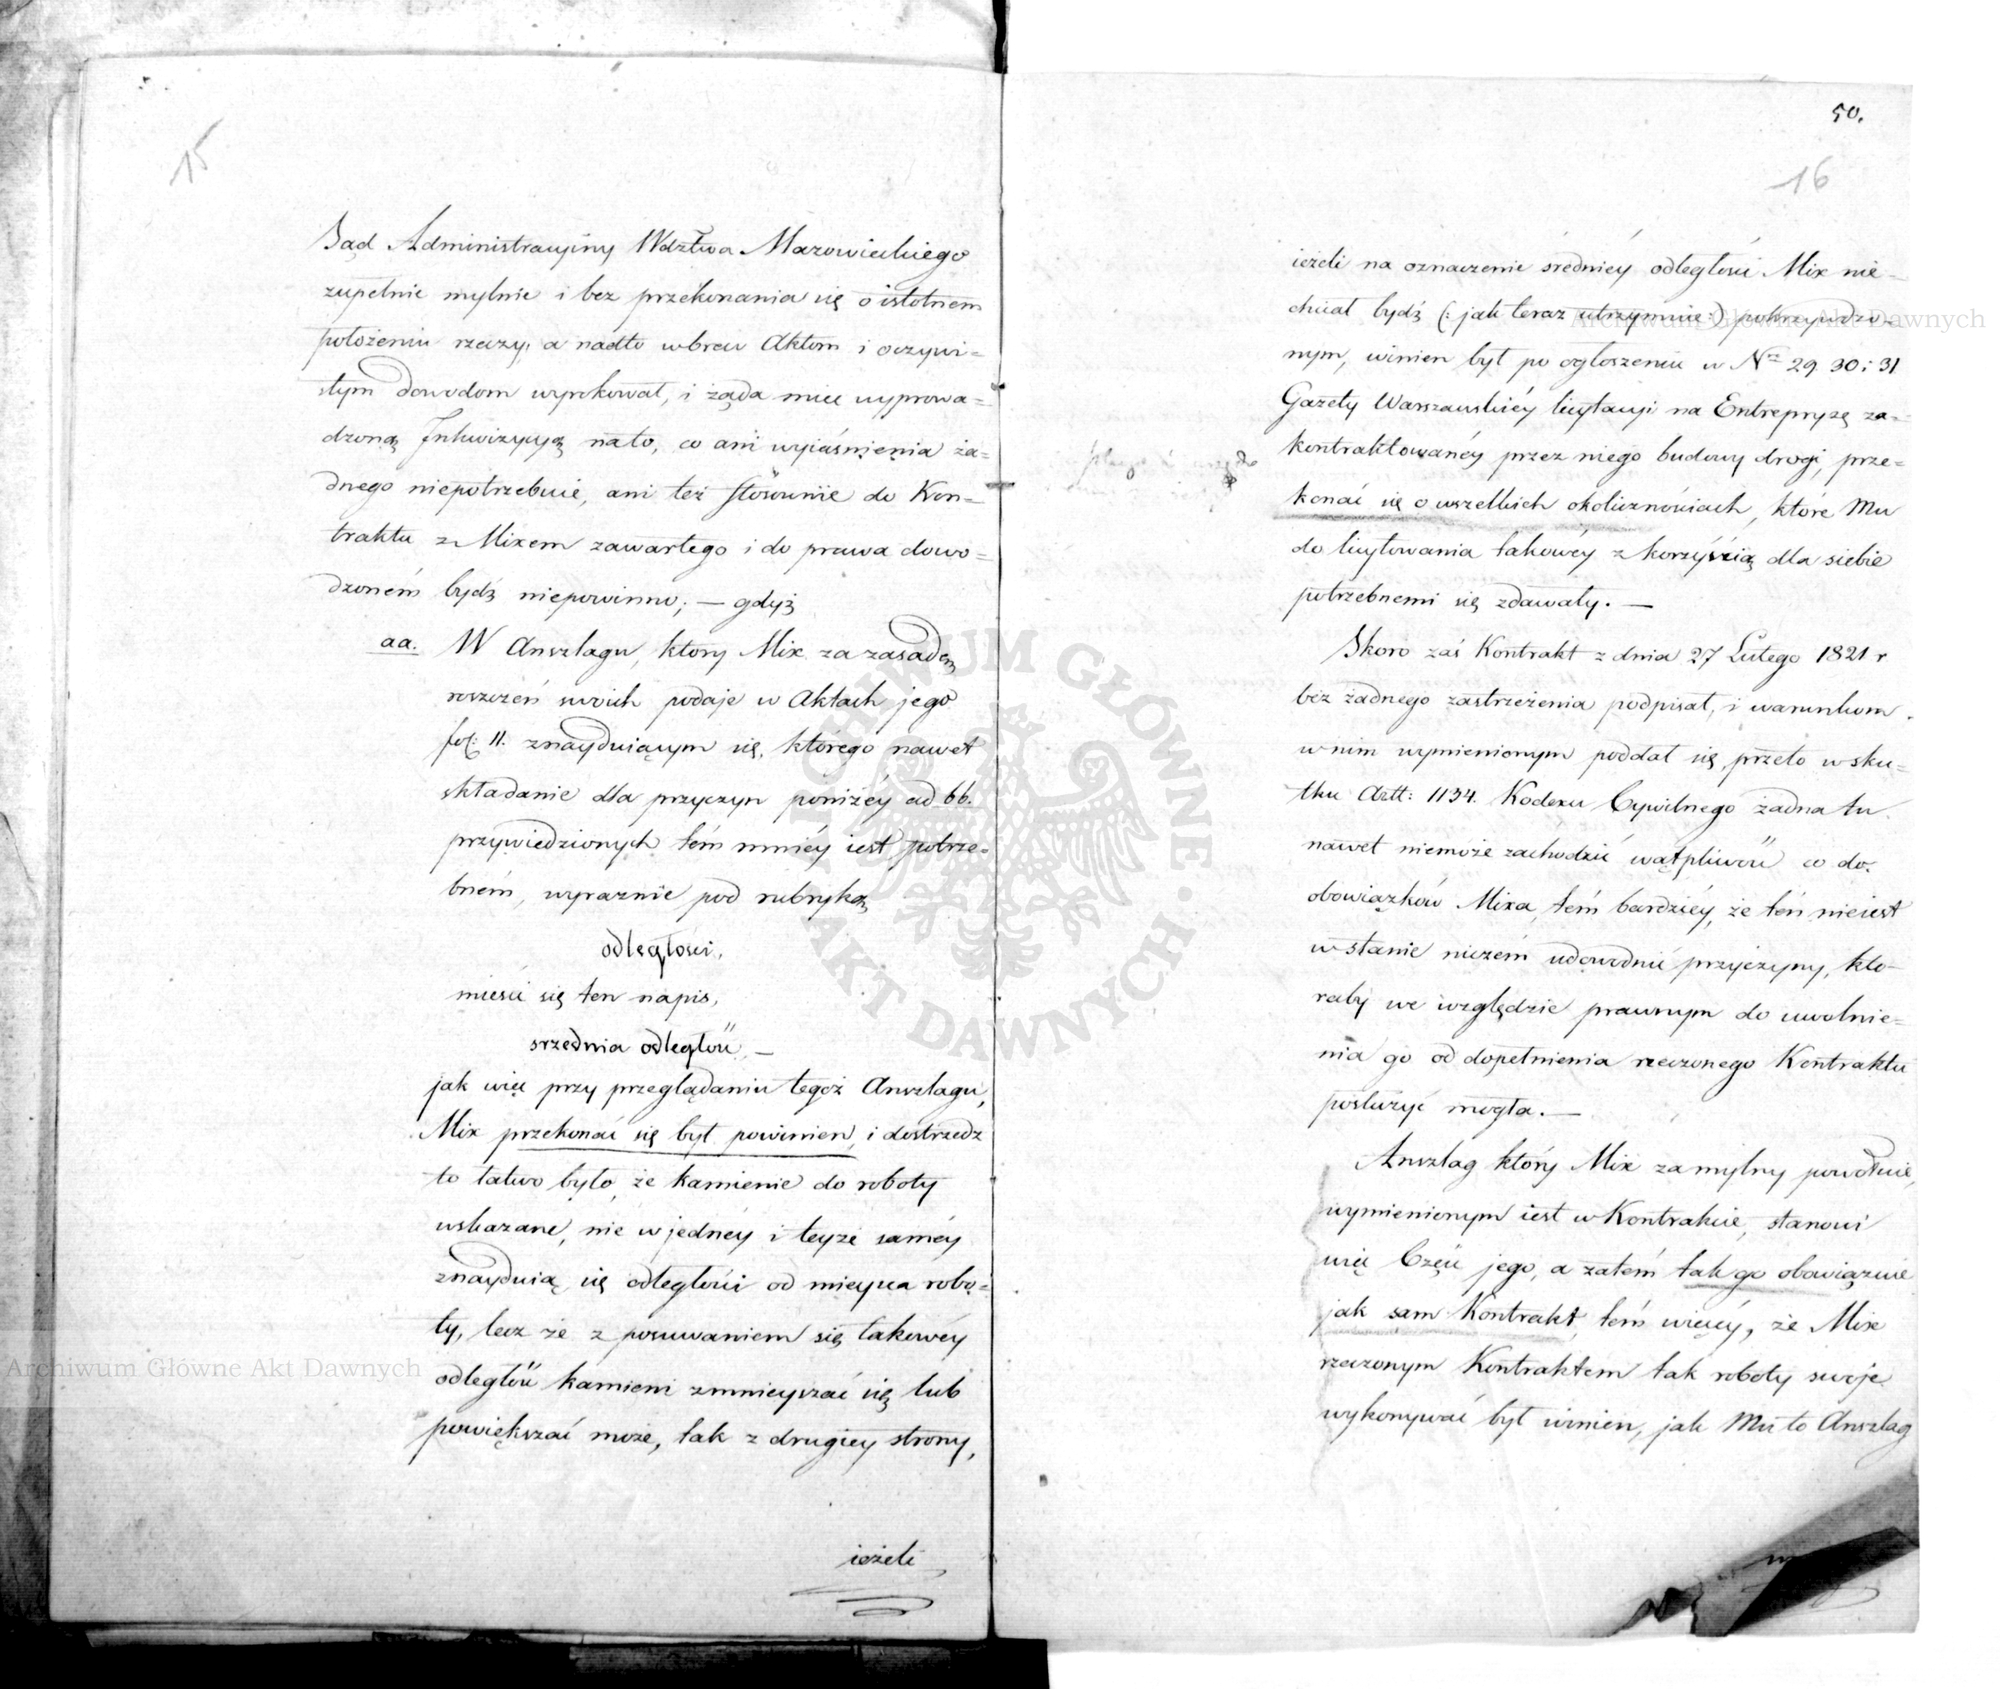 15
Sąd Administracyiny Wdztwa Mazowieckiego
zupełnie mylnie i bez przekonania się o istotnem
położeniu rzeczy, a nadto wbrew Aktom i oczywi=
stym dowodom wyrokował, i żąda mieć wyprowa=
dzoną Inkwizycyą na to, co ani wyiaśnienia ża=
dnego niepotrzebuie, ani też stosownie do Kon=
traktu z Mixem zawartego i do prawa dowo=
dzoném bydź niepowinno; — gdyż
aa. W Anszlagu, który Mix za zasadę
roszczeń swoich podaje w Aktach jego
fol: 11. znayduiącym się, którego nawet
składanie dla przyczyn poniżéy ad bb.
przywiedzionych tém mniéy iest potrze=
bném, wyraznie pod rubryką
odległości,
mieści się ten napis,
srzednia odległość —
jak więc przy przeglądaniu tegoż Anszlagu,
Mix przekonać się był powinien, i dostrzedz
to łatwo było, że kamienie do roboty
wskazane, nie w jednéy i teyże saméy
znayduią się odległości od mieysca robo=
ty, lecz że z posuwaniem się takowéy
odległość kamieni zmnieyszać się lub
powiększać może, tak z drugiey strony,
ieżeli
50.
16
ieżeli na oznaczenie średniéy odległości Mix nie=
chciał bydź (: jak teraz utrzymuie :) pokrzywdzo=
nym, winien był po ogłoszeniu w Nrze 29. 30. i 31
Gazety Warszawskiéy licytacyi na Entrepryzę za=
kontraktowanéy przez niego budowy drogi, prze=
konać się o wszelkich okolicznościach, które Mu
do licytowania takowéy z korzyścią dla siebie
potrzebnemi się zdawały. —
Skoro zaś Kontrakt z dnia 27 Lutego 1821 r
bez żadnego zastrzeżenia podpisał, i warunkom
w nim wymienionym poddał się, przeto w sku=
tku Artt: 1134. Kodexu Cywilnego żadna tu
nawet niemoże zachodzić wątpliwość co do
obowiązków Mixa, tém bardziéy, że tén nieiest
w stanie niczém udowodnić przyczyny, kto=
raby we względzie prawnym do uwolnie=
nia go od dopełnienia rzeczonego Kontraktu
posłużyć mogła. —
Anszlag który Mix za mylny powołuie,
wymienionym iest w Kontrakcie, stanowi
więc Część jego, a zatém tak go obowiązuie
jak sam Kontrakt, tém więcéy, że Mix
rzeczonym Kontraktem tak roboty swoje
wykonywać był winien, jak Mu to Anszlag
Archiwum Główne Akt Dawnych
Archiwum Główne Akt Dawnych
ARCHIWUM GŁÓWNE AKT DAWNYCH